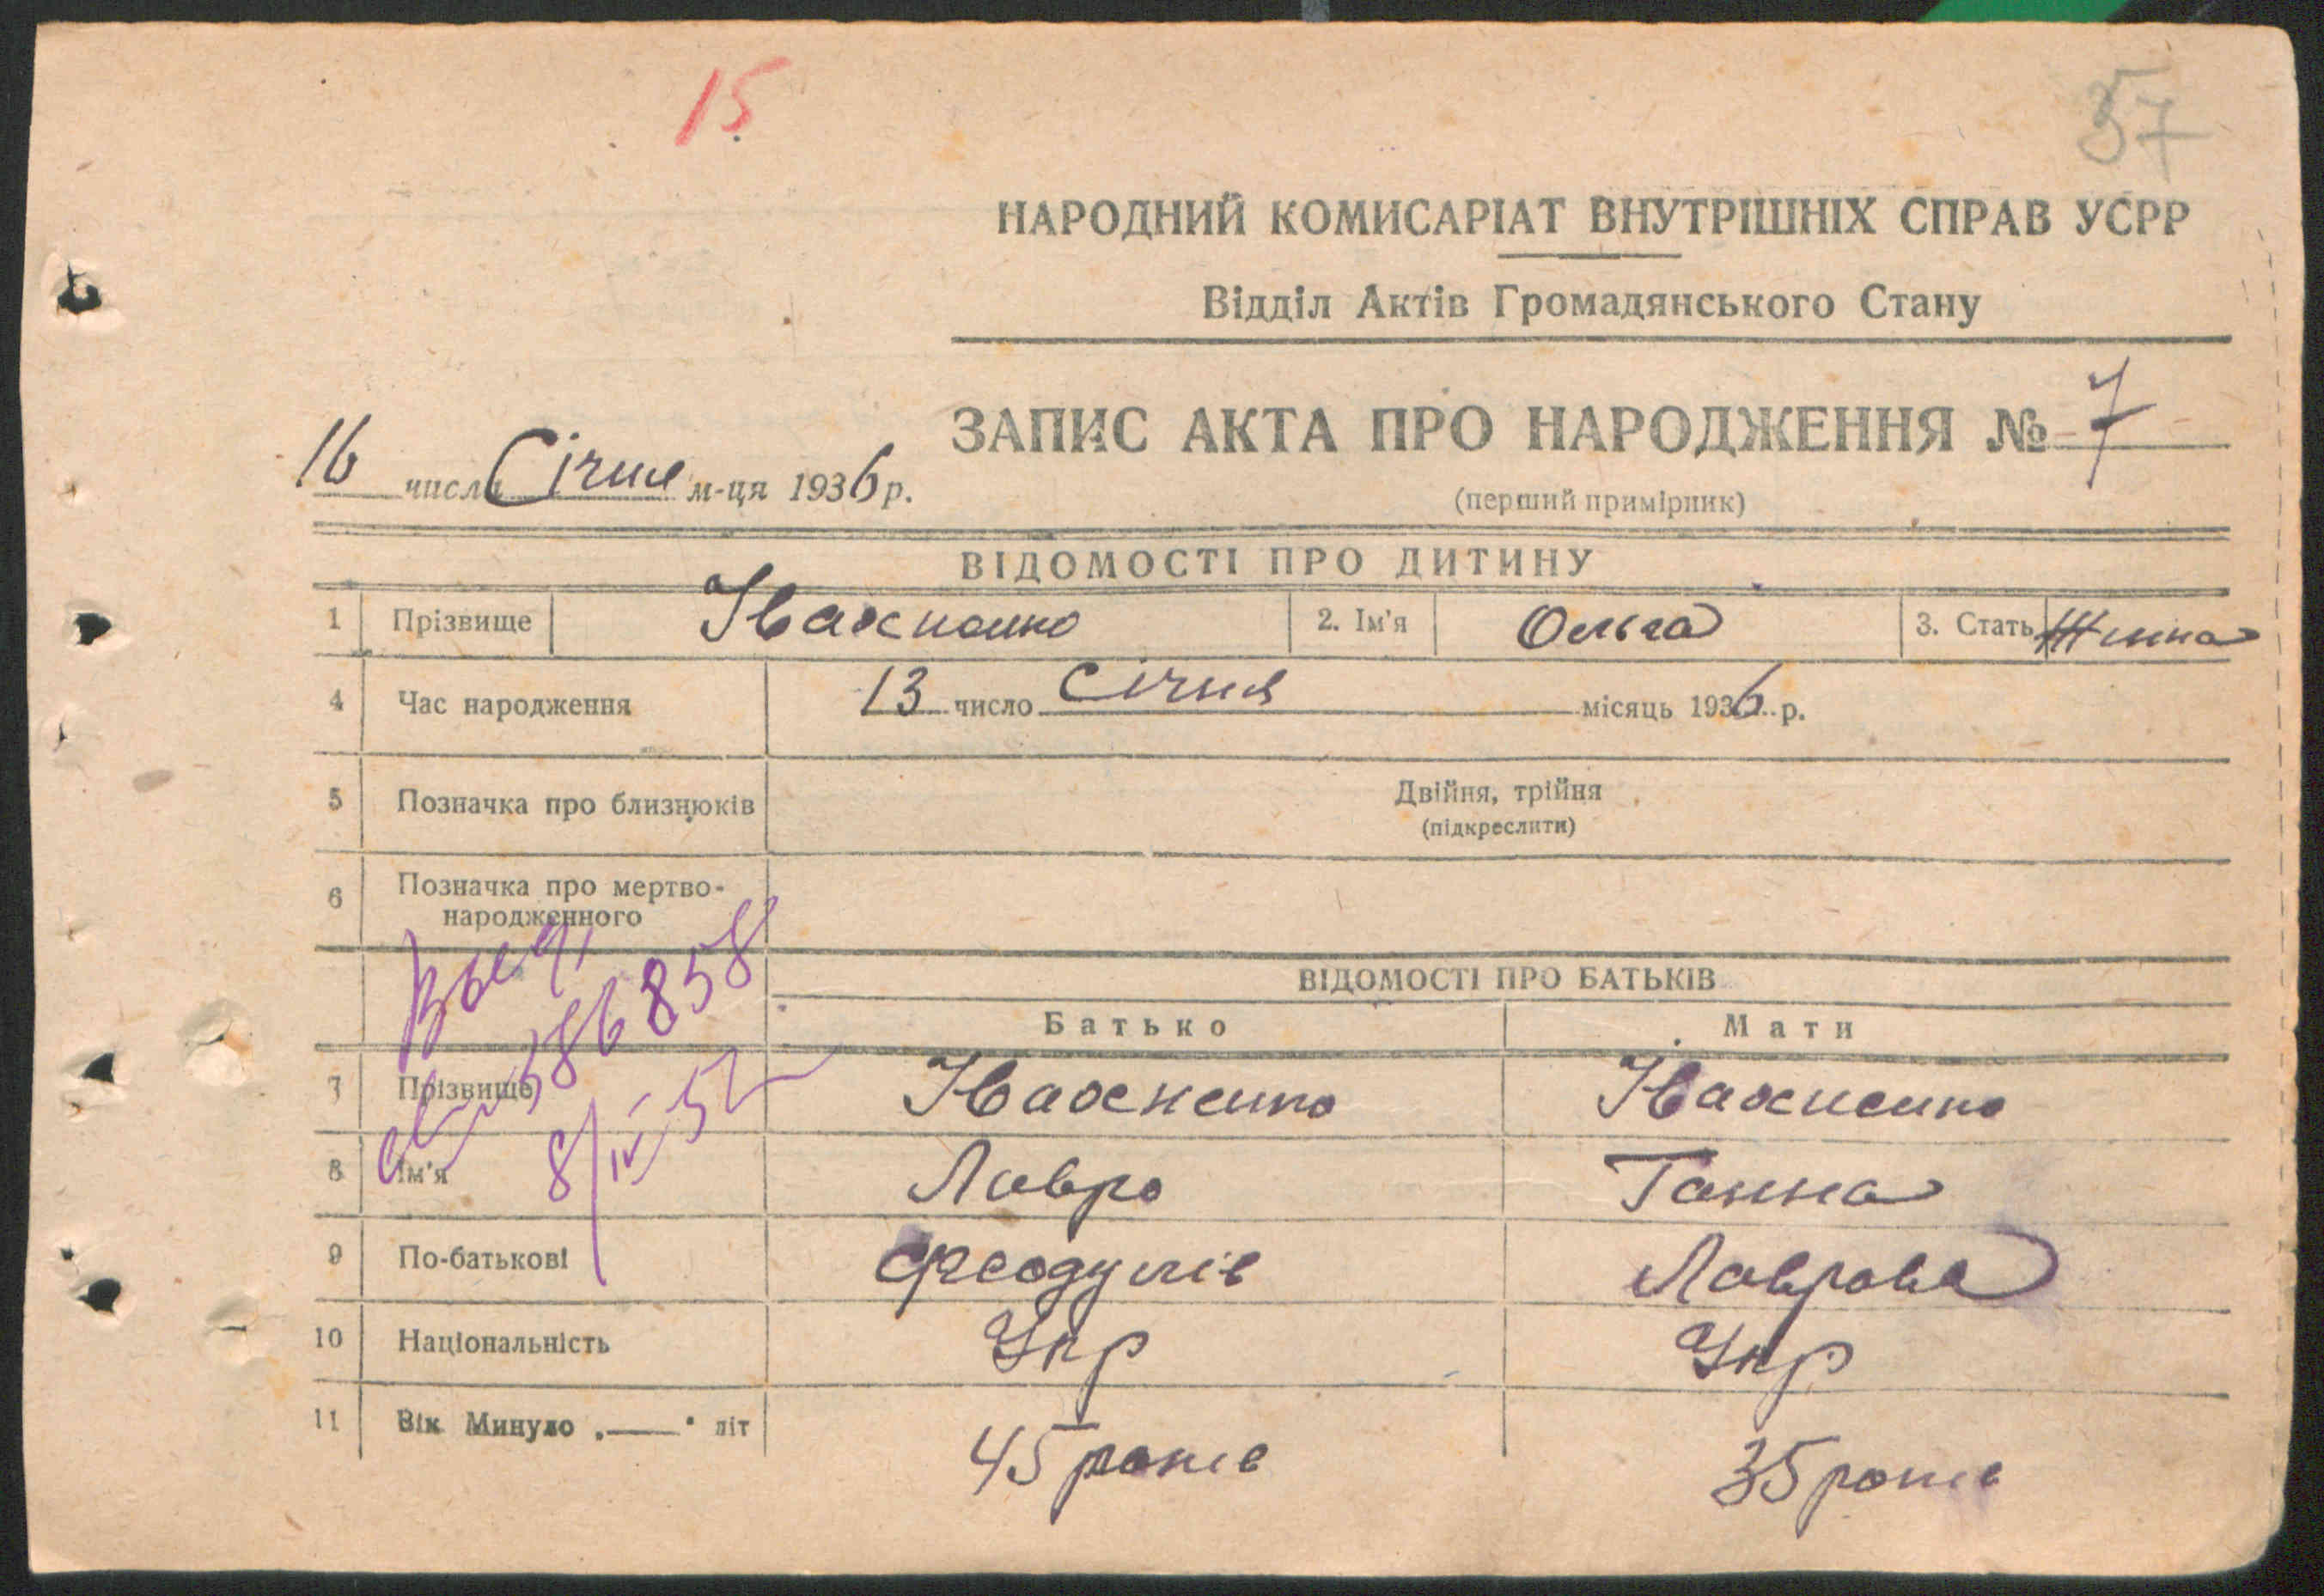 15
37
НАРОДНИЙ КОМИСАРІАТ ВНУТРІШНІХ СПРАВ УСРР
Відділ Актів Громадянського Стану
ЗАПИС АКТА ПРО НАРОДЖЕННЯ № 7
16 числа Січня м-ця 1936 р.
(перший примірник)
ВІДОМОСТІ ПРО ДИТИНУ
1 Прізвище Івахненко 2. Ім'я Ольга 3. Стать Жіноча
4 Час народження 13 число Січня місяць 1936 р.
5 Позначка про близнюків Двійня, трійня
(підкреслити)
6 Позначка про мертво-
народженного
ВІДОМОСТІ ПРО БАТЬКІВ
Батько Мати
386858
8/IV-52
7 Прізвище Івахненко Івахненко
8 Ім'я Лавро Ганна
9 По-батькові Феодулів Лаврова
10 Національність Укр Укр
11 Вік Минуло „—“ літ 45 років 35 років